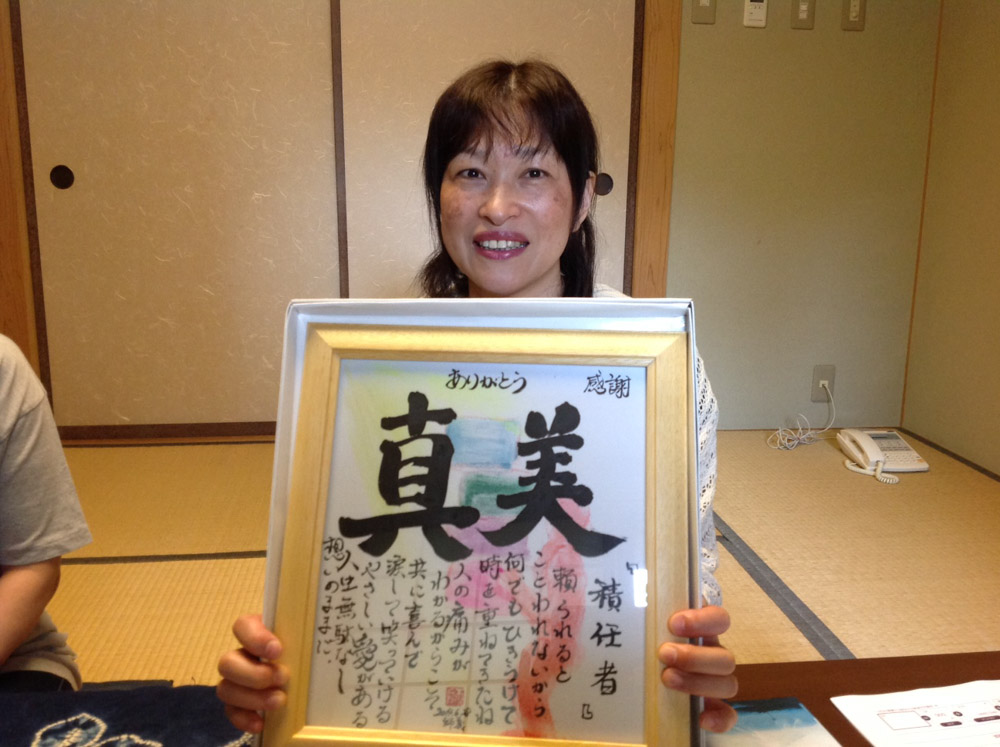 ありがとう
感謝
真美
『積任者』
頼られると
ことわれないから
何でもひきうけて
時を重ねてきたね
人の痛みが
わかるからこそ
共に喜んで
涙して笑っていける
やさしい愛がある
人生無駄なし
想いのままに